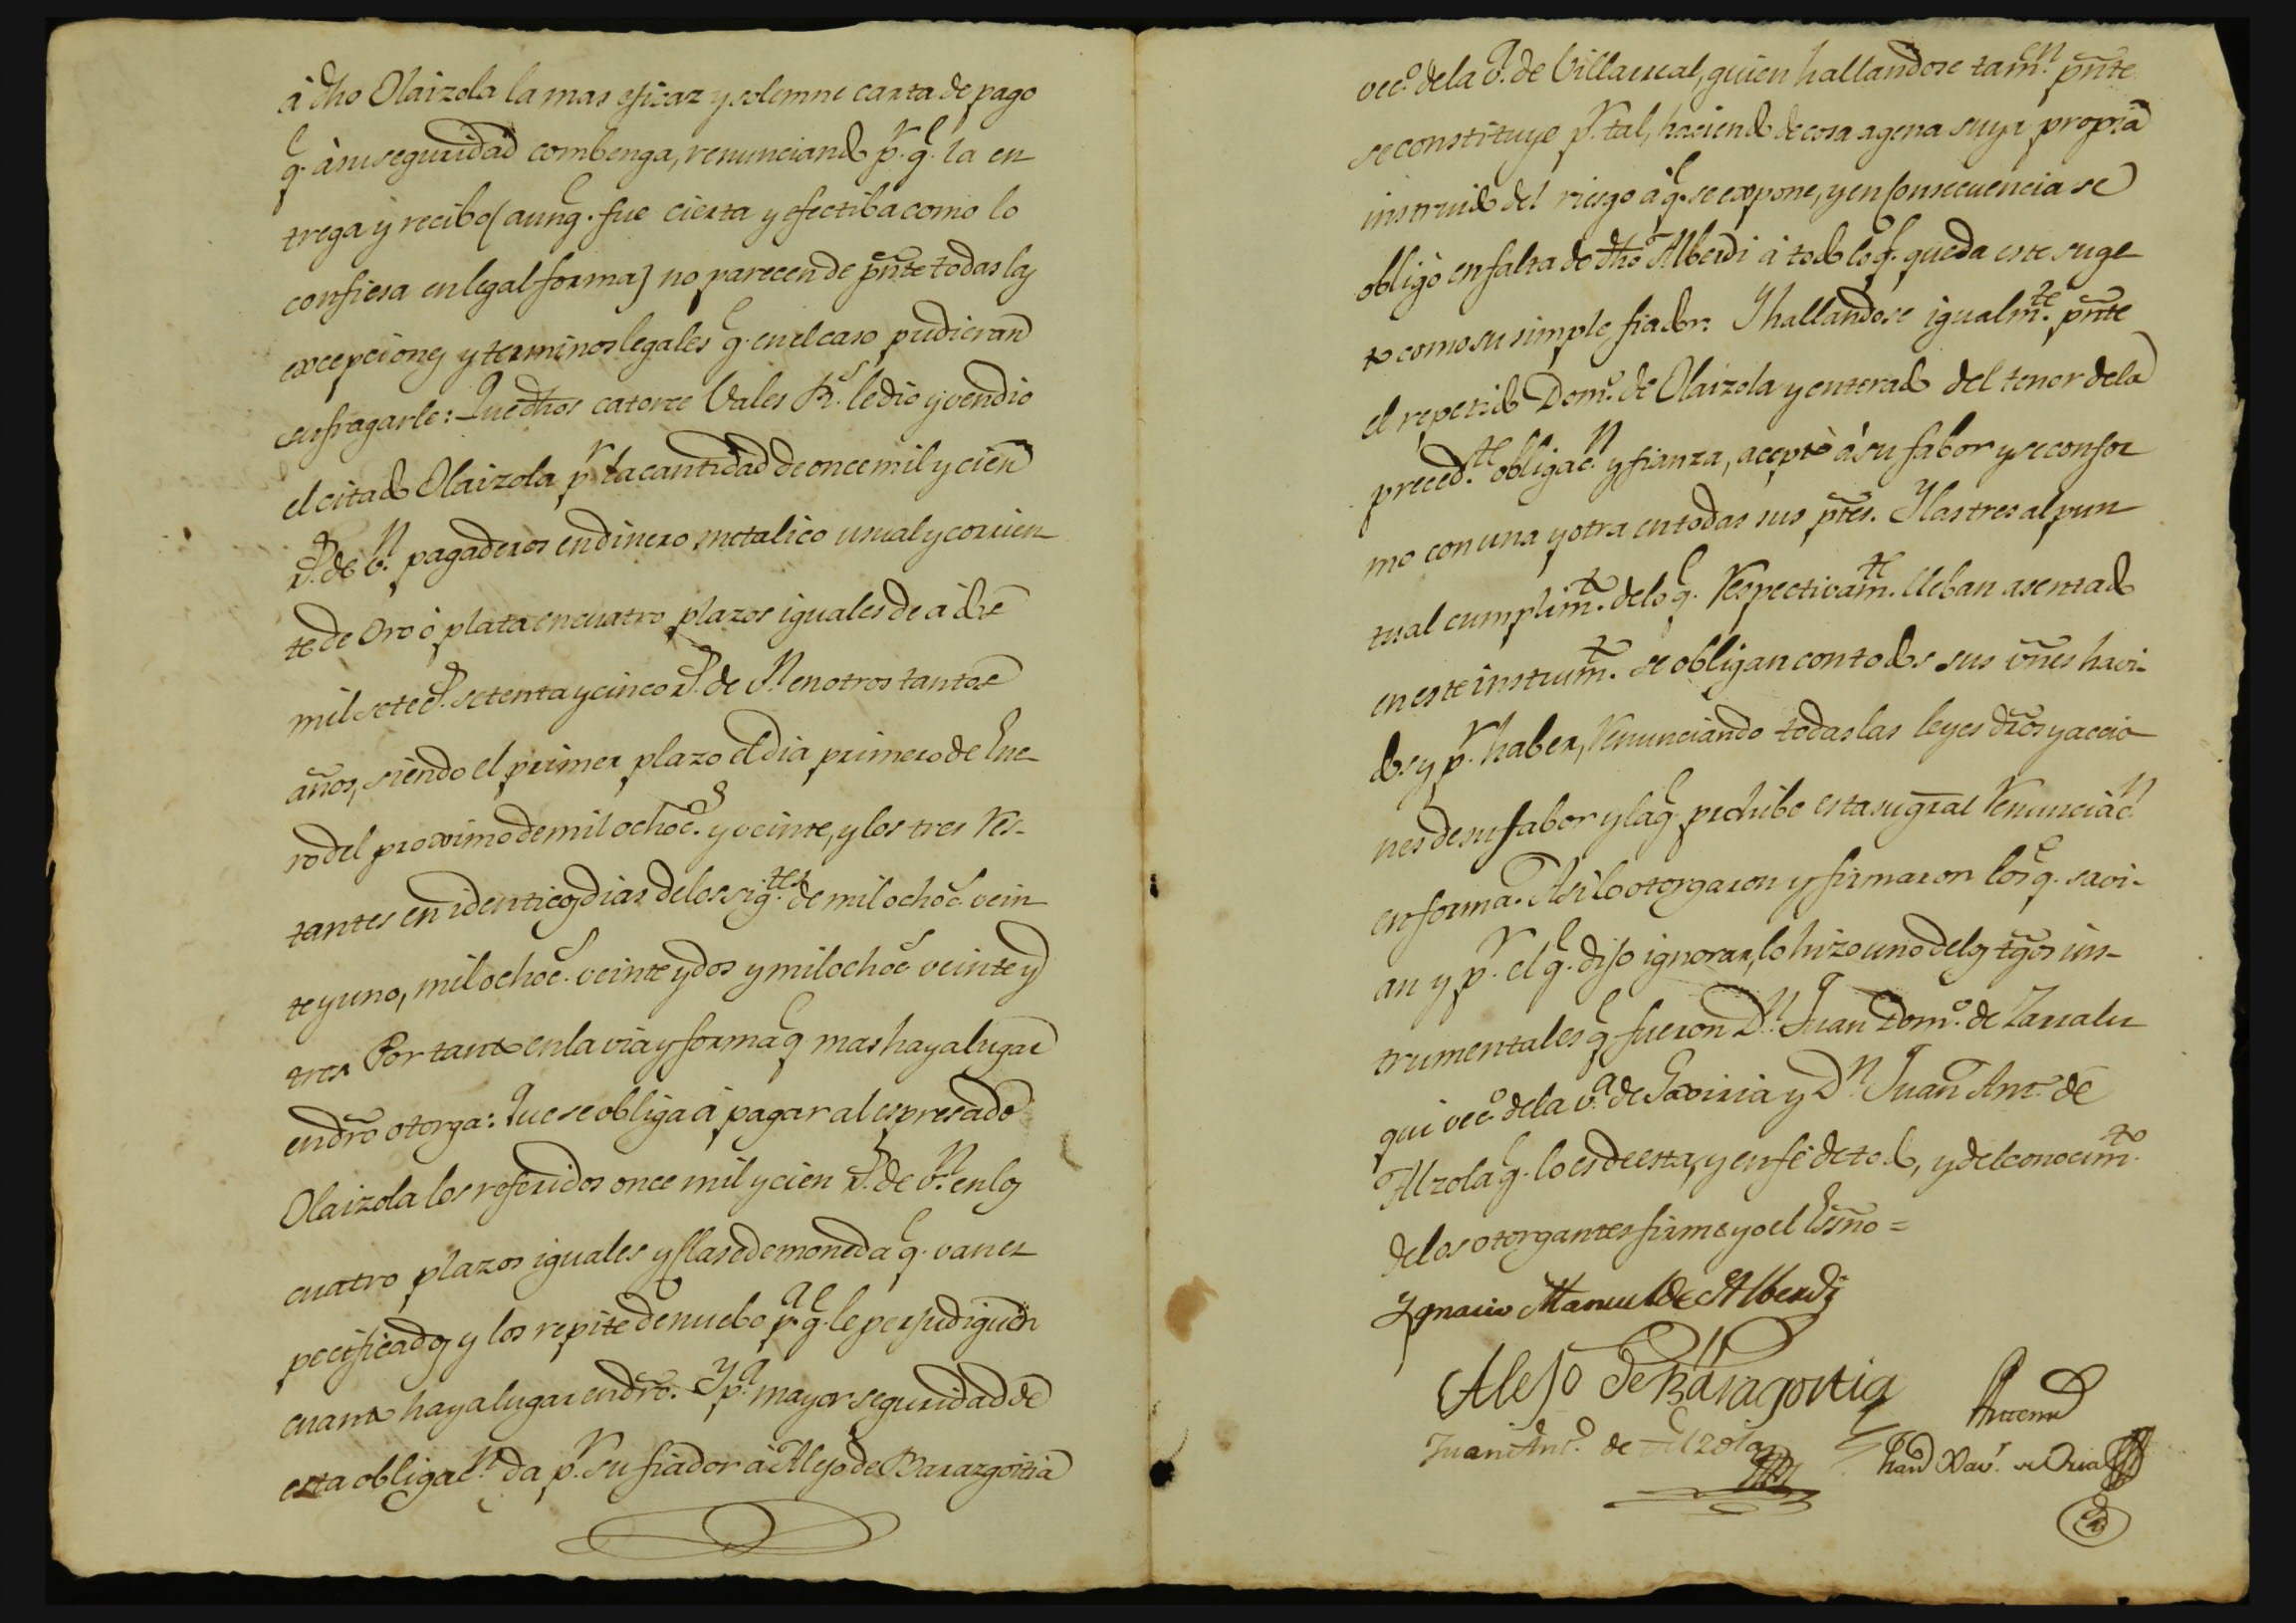 à dho Olaizola la mas eficaz y solemne carta de pago
q.e à su seguridad combenga, renunciando p.r q.e la en
trega y recibo (aunq.e fue cierta y efectiba como lo
confiesa en legal forma) no parecen de pñte todas las
excepciones y terminos legales q.e en el caso pudieran
sufragarle: Que dhos catorce Vales R.s le dio y vendio
el citado Olaizola p.r la cantidad de once mil y cien
r.s de v.n pagaderos en dinero metalico usual y corrien
te de Oro ó plata en cuatro plazos iguales de á dos
mil setec.s setenta y cinco r.s de v.n en otros tantos
años, siendo el primer plazo el dia primero de Ene
ro del proximo de mil ochoc.s y veinte, y los tres res-
tantes en identicos dias de los sig.tes de mil ochoc.s vein
te y uno, mil ochoc.s veinte y dos y mil ochoc.s veinte y
tres. Por tanto en la via y forma q.e mas haya lugar
en dro otorga: Que se obliga á pagar al espresado
Olaizola los referidos once mil y cien r.s de v.n en los
cuatro plazos iguales y clase de moneda q.e van es
pecificados y los repite de nuebo p.a q.e le perjudiquen
cuanto haya lugar en dro. Y p.a mayor seguridad de
esta obligac.n da p.r su fiador á Alejo de Barazgoitia
vec.o de la v.a de Villarreal, quien hallandose tamn. pñte
se constituye p.r tal, haciendo de cosa agena suya propia
instruido del riesgo á q.e se expone, y en consecuencia se
obligó en falta de dho Alberdi á todo lo q.e queda este suge
to como su simple fiador: Y hallandose igualm.te pñte
el repetido Dom.o de Olaizola y enterado del tenor de la
preced.te obligac.n y fianza, aceptò á su fabor y se confor
mo con una y otra en todas sus ptes. Y las tres al pun
tual cumplim.to de lo q.e respectivam.te lleban asentado
en este instrum.to se obligan con todos sus vnes havi-
dos y p.r haber, renunciando todas las leyes dros y accio
nes de su fabor y la q.e prohibe esta su gral renunciac.n
en forma. Asi lo otorgaron y firmaron los q.e savi-
an y p.r el q.e dijo ignorar, lo hizo uno de los tgos ins-
trumentales q.e fueron D.n Juan Dom.o de Zavalu
qui vec.o de la v.a de Gaviria y D.n Juan Ant.o de
Alzola q.e lo es de esta, y en fé de todo, y del conocim.to
de los otorgantes firmé yo el Esno =
Ygnacio Manuel de Alberdi
Alejo de Barazgoitia
Juan Ant.o de Alzola
Antemi